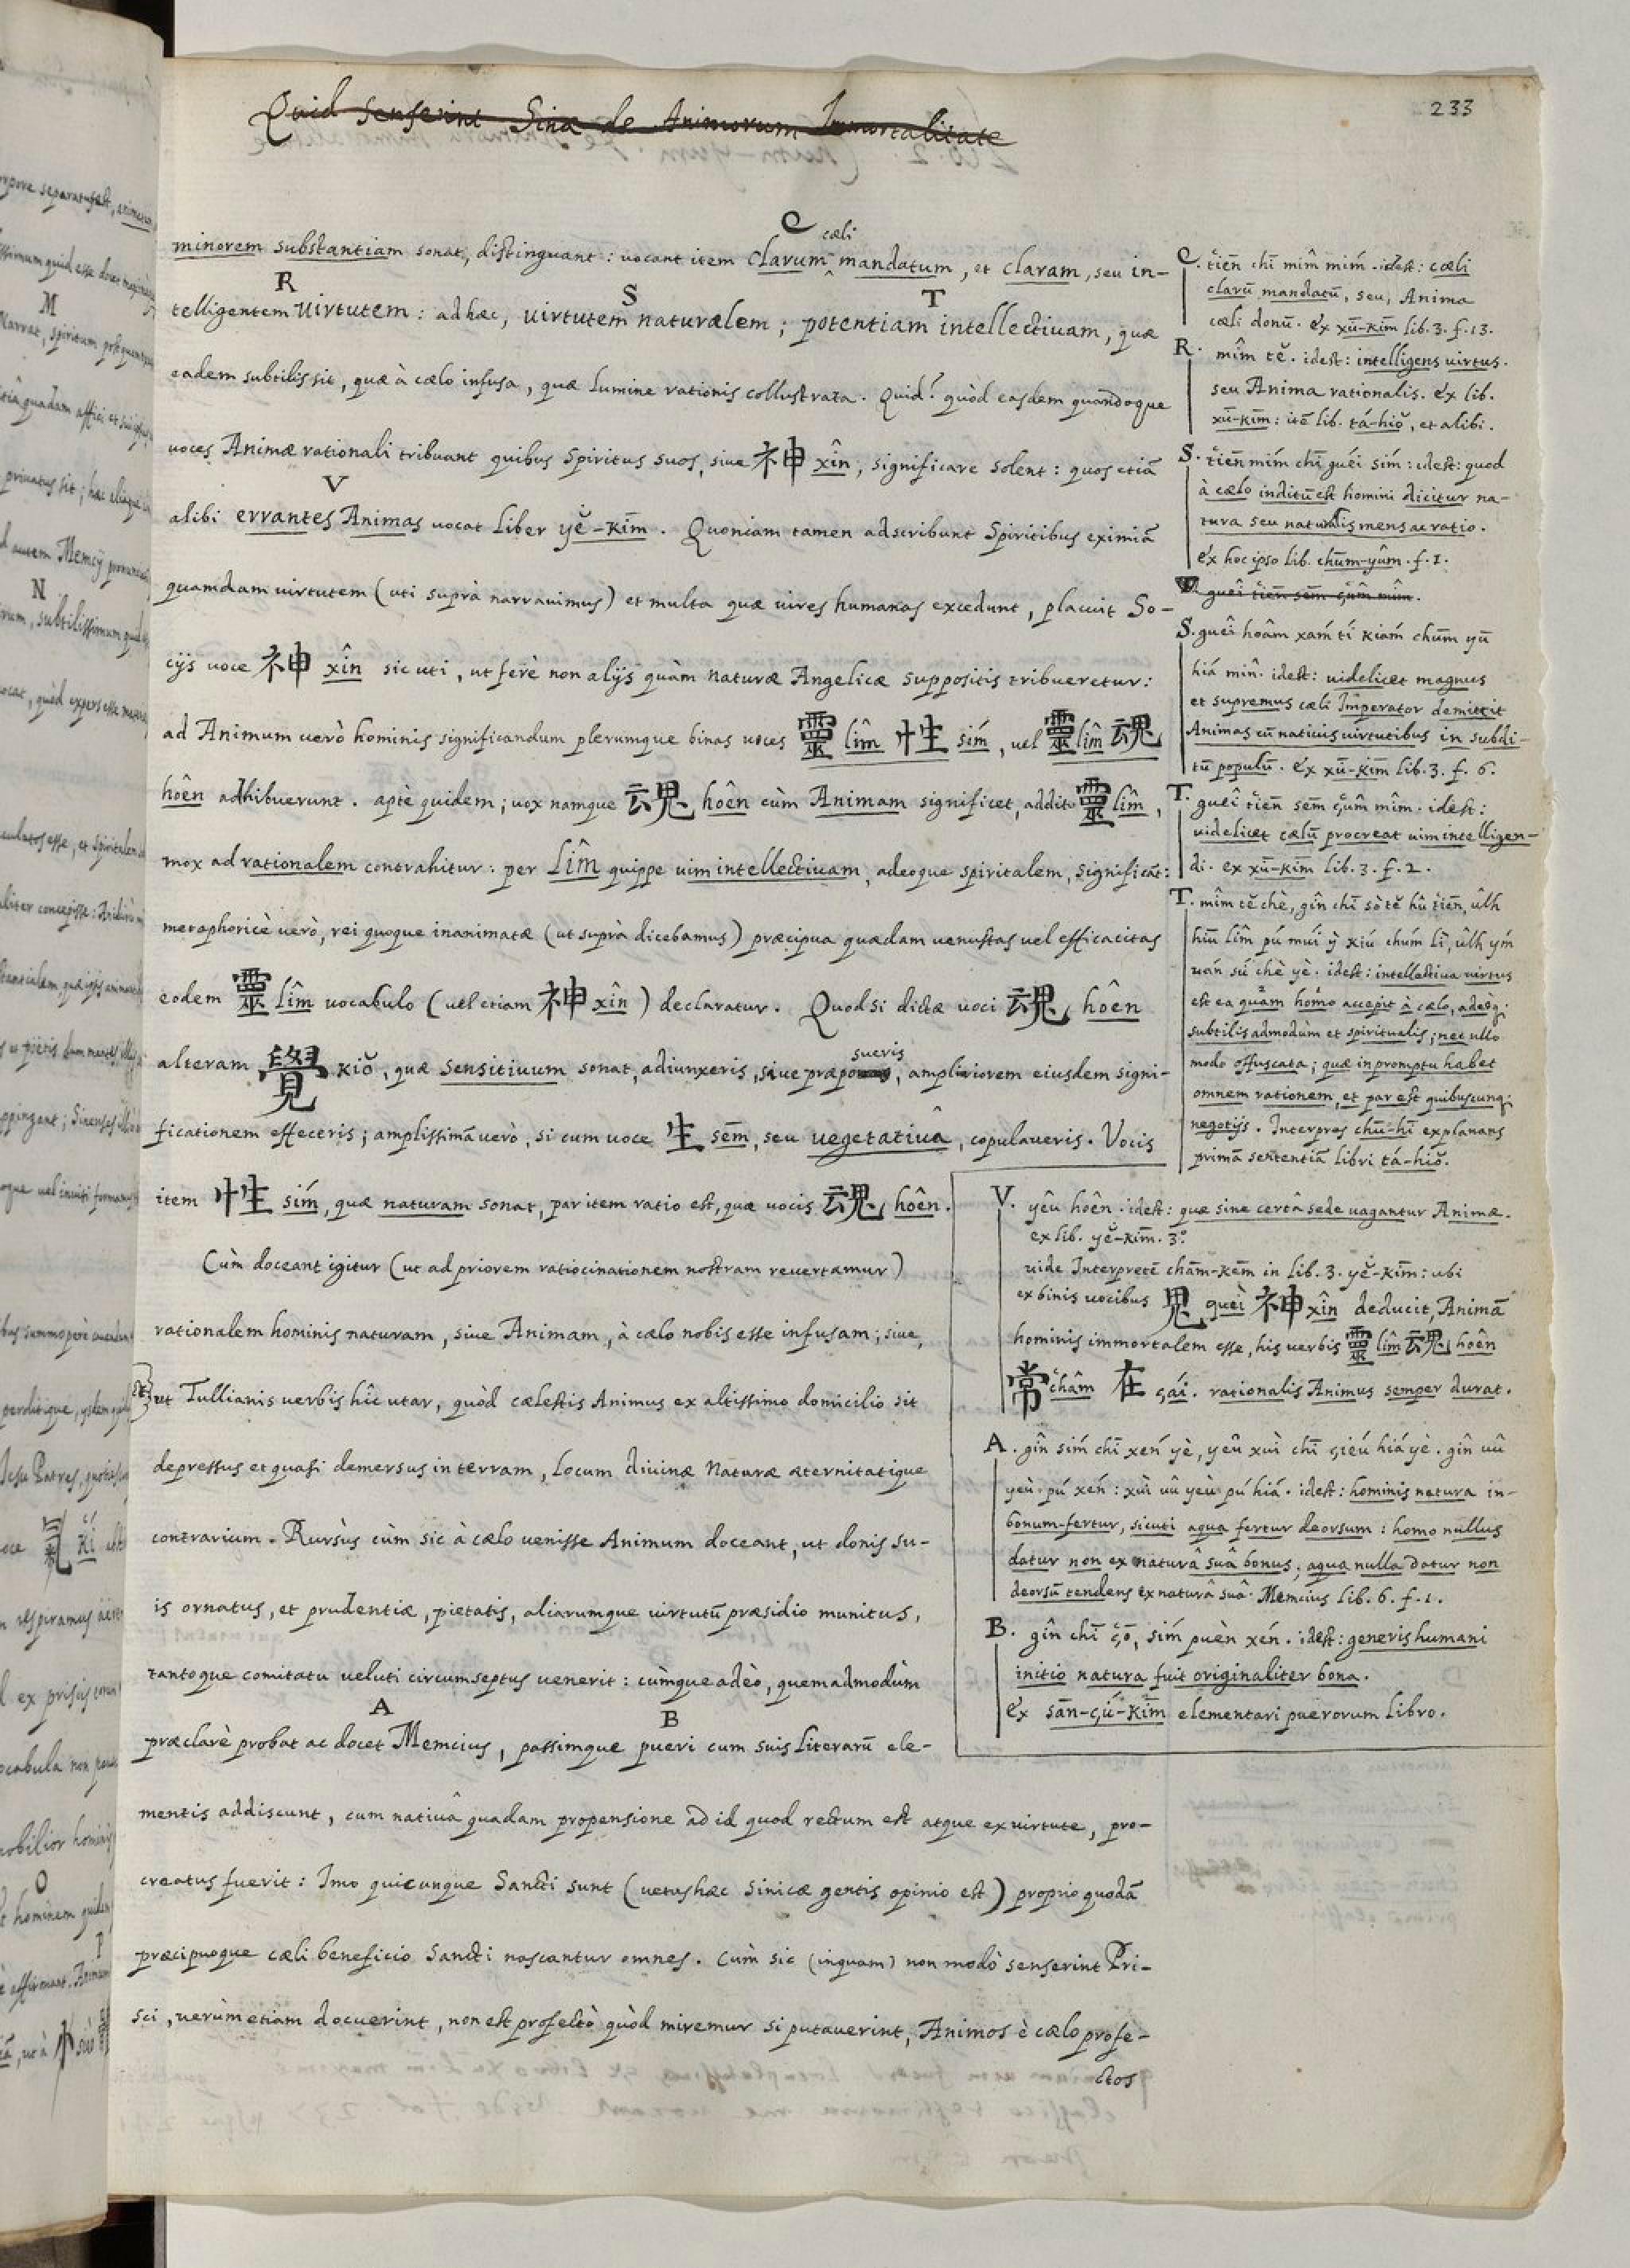 Quid senserint Sinæ de Animorum Immortalitate
233
C cæli
minorem substantiam sonat, distinguant: uocant item clarum mandatum, et claram, seu in-
R S T
telligentem uirtutem: ad hæc, uirtutem naturalem; potentiam intellectiuam, quæ
eadem subtilis sit, quæ à cælo infusa, quæ lumine rationis collustrata. Quid? quòd easdem quandoque
uoces Animæ rationali tribuant quibus Spiritus suos, siue 神 xîn, significare solent: quos etiã
V
alibi errantes Animas uocat Liber yĕ-kīm. Quoniam tamen adscribunt Spiritibus eximiã
quamdam uirtutem (uti suprà narrauimus) et multa quæ uires humanas excedunt, placuit So-
cijs uoce 神 xîn sic uti, ut ferè non alijs quàm naturæ Angelicæ suppositis tribueretur:
ad Animum uerò hominis significandum plerumque binas uoces 靈 lîm 性 sím, uel 靈 lîm 魂
hoên adhibuerunt. aptè quidem; uox namque 魂 hoên cùm Animam significet, addito 靈 lîm,
mox ad rationalem contrahitur: per Lîm quippe uim intellectiuam, adeoque spiritalem, significãt:
metaphoricè uerò, rei quoque inanimatæ (ut suprà dicebamus) præcipua quædam uenustas uel efficacitas
eodem 靈 lîm uocabulo (uel etiam 神 xîn) declaratur. Quod si dictæ uoci 魂 hoên
sueris
alteram 覺 kiŏ, quæ sensitiuum sonat, adiunxeris, siue præpo, ampliorem eiusdem signi-
ficationem effeceris; amplissimã uerò, si cum uoce 生 sēm, seu uegetatiuâ, copulaueris. Vocis
item 性 sím, quæ naturam sonat, par item ratio est, quæ uocis 魂 hoên.
Cùm doceant igitur (ut ad priorem ratiocinationem nostram reuertamur)
rationalem hominis naturam, siue Animam, à cælo nobis esse infusam; siue,
ut Tullianis uerbis hîc utar, quòd cælestis Animus ex altissimo domicilio sit
depressus et quasi demersus in terram, locum diuinæ Naturæ æternitatique
contrarium. Rursùs cùm sic à cælo uenisse Animum doceant, ut donis su-
is ornatus, et prudentiæ, pietatis, aliarumque uirtutũ præsidio munitus,
tantoque comitatu ueluti circumseptus uenerit: cùmque adeò, quemadmodùm
A B
præclarè probat ac docet Memcius, passimque pueri cum suis literarũ ele-
mentis addiscunt, cum natiuâ quadam propensione ad id quod rectum est atque ex uirtute, pro-
creatus fuerit: Imo quicunque Sancti sunt (uetus hæc Sinicæ gentis opinio est) proprio quodã
præcipuoque cæli beneficio Sancti nascantur omnes. Cùm sic (inquam) non modò senserint Pri-
sci, uerùm etiam docuerint, non est profectò quòd miremur si putauerint, Animos è cælo profe-
ctos
C. tiēn chī mîm mím. idest: cæli
clarũ mandatũ, seu, Anima
cæli donũ. Ex xū-kīm lib. 3. f. 13.
R. mîm tĕ. idest: intelligens uirtus.
seu Anima rationalis. Ex lib.
xū-kīm: itẽ lib. tá-hiŏ, et alibi.
S. tiēn mím chī guéi sím: idest: quod
à cælo inditũ est homini dicitur na-
tura seu naturalis mens ac ratio.
Ex hoc ipso lib. chūm-yûm. f. 1.
guêi tiēn sēm çūm mîm.
S. guêi hoâm xám tí kiám chūm yū
hiá mîn. idest: uidelicet magnus
et supremus cæli Imperator demittit
Animas cũ natiuis uirtutibus in subdi-
tũ populũ. Ex xū-kīm lib. 3. f. 6.
T. guêi tiēn sēm çūm mîm. idest:
uidelicet cælũ procreat uim intelligen-
di. ex xū-kīm lib. 3. f. 2.
T. mîm tĕ chè, gîn chī sò tĕ hû tiēn, ûlh
hiū lîm pú múi ỳ xiú chúm lì, ûlh ým
uán sú chè yè. idest: intellectiua uirtus
est ea quam homo accepit à cælo, adeòq;
subtilis admodùm et spiritualis; nec ullo
modo offuscata; quæ in promptu habet
omnem rationem, et par est quibuscunq;
negotijs. Interpres chū-hī explanans
primã sententiã libri tá-hiŏ.
V. yêu hoên. idest: quæ sine certâ sede uagantur Animæ.
ex lib. yĕ-kīm. 3.º
uide Interpretẽ chām-kēm in lib. 3. yĕ-kīm: ubi
ex binis uocibus 鬼 quèi 神 xîn deducit, Animã
hominis immortalem esse, his uerbis 靈 lîm 魂 hoên
常 châm 在 çái. rationalis Animus semper durat.
A. gîn sím chī xén yè, yêu xùi chī çiéu hiá yè. gîn uû
yèu pú xén: xùi uû yèu pú hiá. idest: hominis natura in
bonum fertur, sicuti aqua fertur deorsum: homo nullus
datur non ex naturâ suâ bonus; aqua nulla datur non
deorsũ tendens ex naturâ suâ. Memcius lib. 6. f. 1.
B. gîn chī çō, sím puèn xén. idest: generis humani
initio natura fuit originaliter bona.
Ex sān-çú-kīm elementari puerorum Libro.